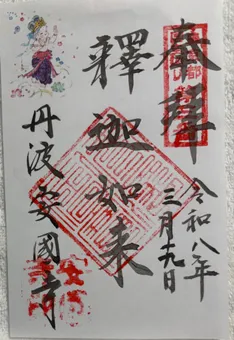 奉拝
令和八年
三月十九日
釋迦如来
丹波安國寺